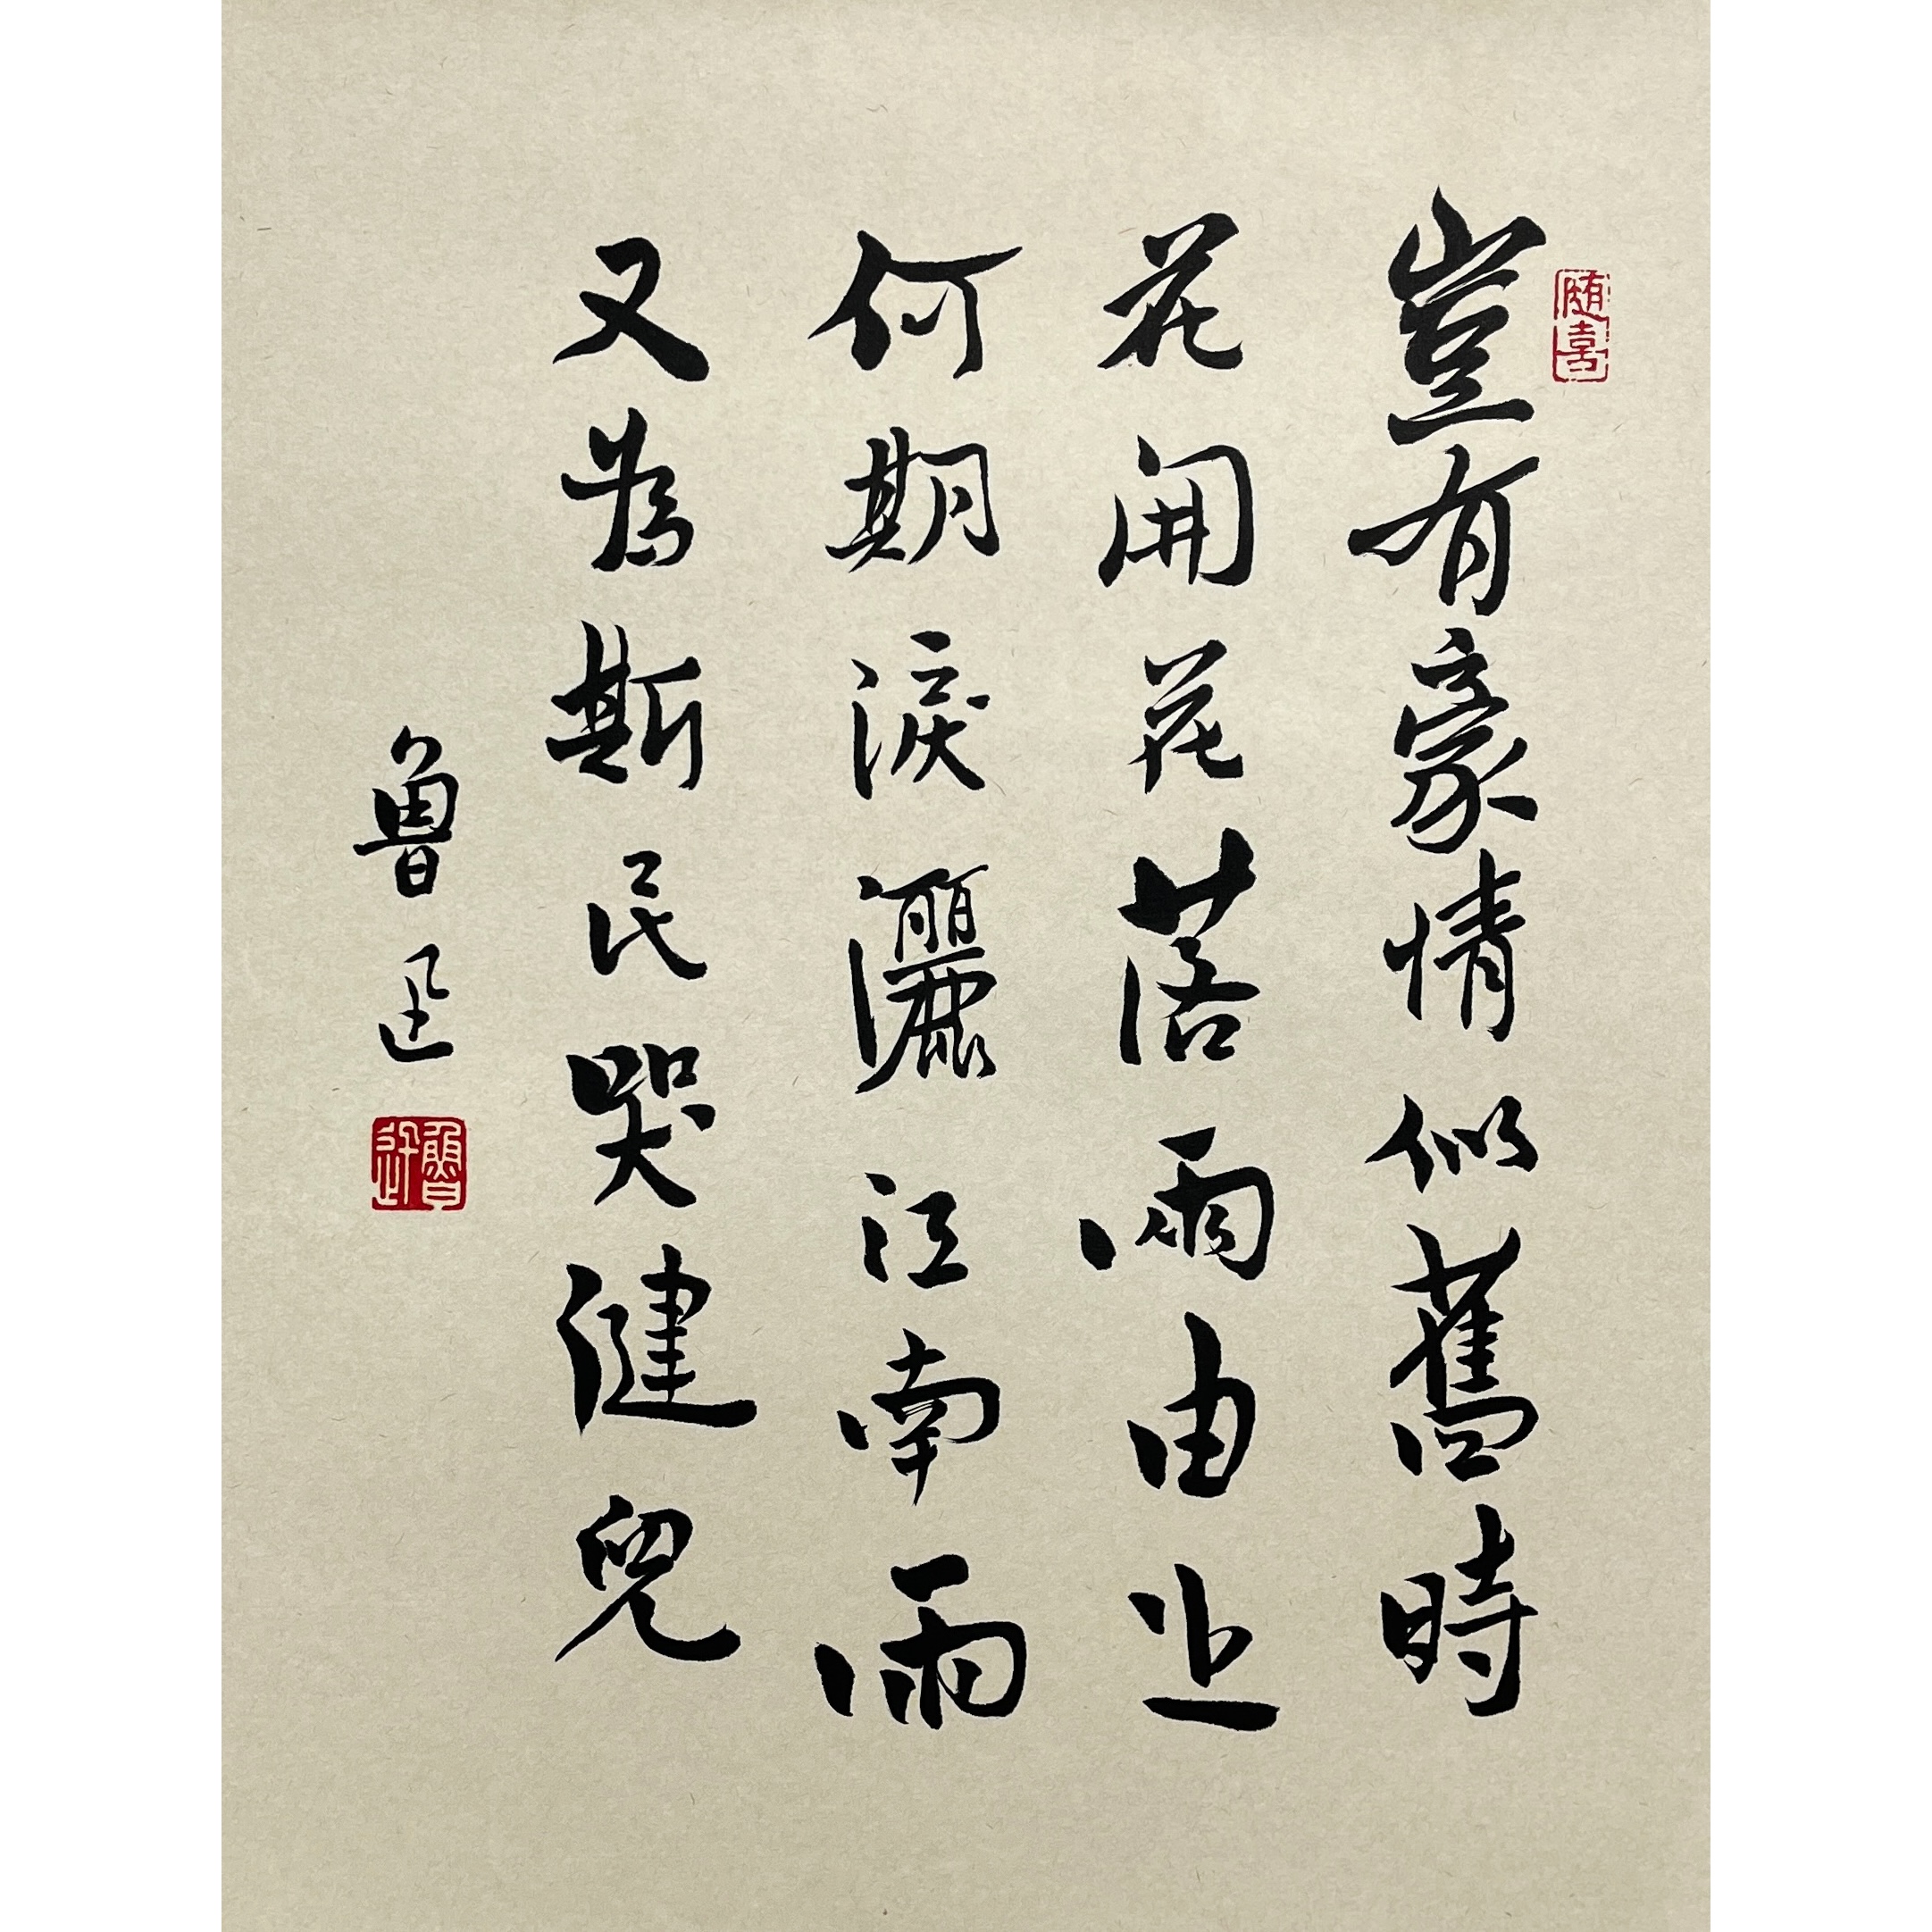 隨喜
豈有豪情似舊時
花開花落兩由之
何期淚灑江南雨
又為斯民哭健兒
魯迅
魯迅